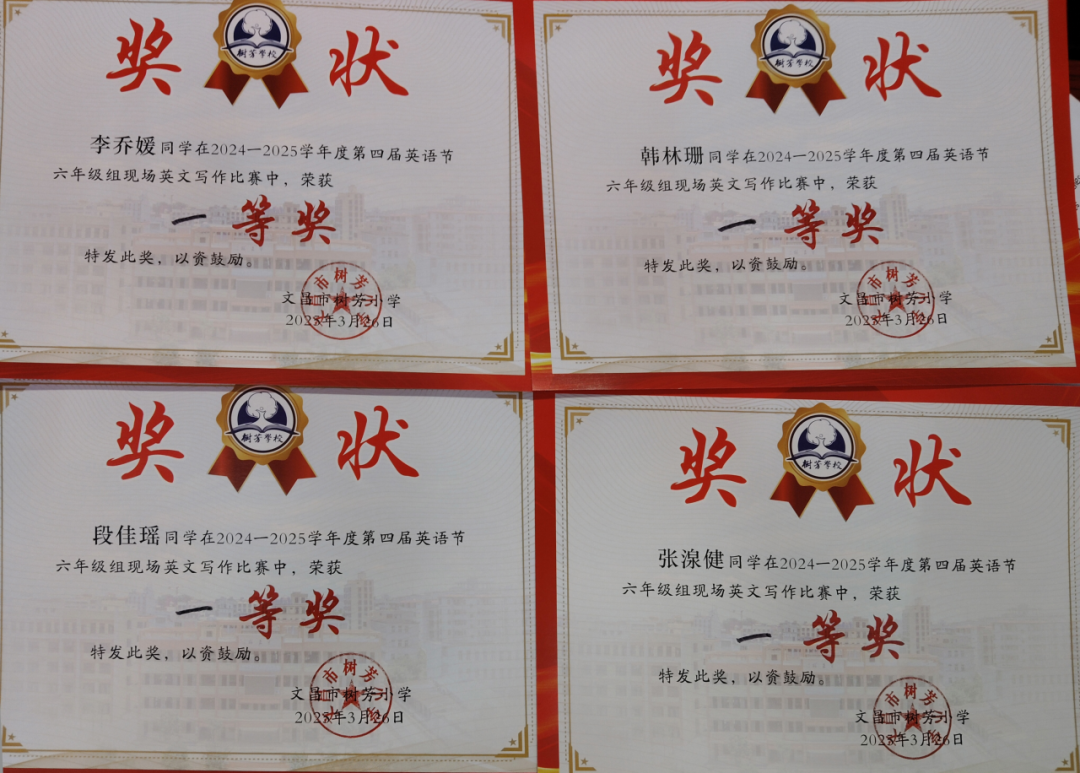 奖状
树芳学校
李乔媛同学在2024—2025学年度第四届英语节
六年级组现场英文写作比赛中，荣获
一等奖
特发此奖，以资鼓励。
文昌市树芳小学
2025年3月26日
奖状
树芳学校
韩林珊同学在2024—2025学年度第四届英语节
六年级组现场英文写作比赛中，荣获
一等奖
特发此奖，以资鼓励。
文昌市树芳小学
2025年3月26日
奖状
树芳学校
段佳瑶同学在2024—2025学年度第四届英语节
六年级组现场英文写作比赛中，荣获
一等奖
特发此奖，以资鼓励。
文昌市树芳小学
2025年3月26日
奖状
树芳学校
张湶健同学在2024—2025学年度第四届英语节
六年级组现场英文写作比赛中，荣获
一等奖
特发此奖，以资鼓励。
文昌市树芳小学
2025年3月26日